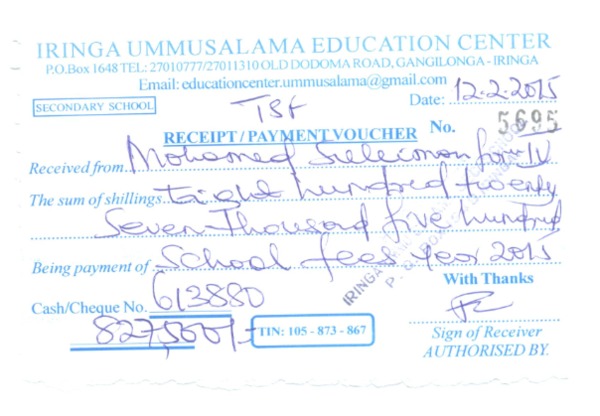 IRINGA UMMUSALAMA EDUCATION CENTER
P.O.Box 1648 TEL: 27010777/27011310 OLD DODOMA ROAD, GANGILONGA - IRINGA
Email: educationcenter.ummusalama@gmail.com
SECONDARY SCHOOL TSF Date: 12.2.2015
RECEIPT/PAYMENT VOUCHER No. 5695
Received from Mohamed Suleiman form IV
The sum of shillings Eight hundred twenty
Seven Thousand five hundred
Being payment of School fees year 2015
With Thanks
Cash/Cheque No. 613880
827,500/= TIN: 105 - 873 - 867
Sign of Receiver
AUTHORISED BY.
IRINGA